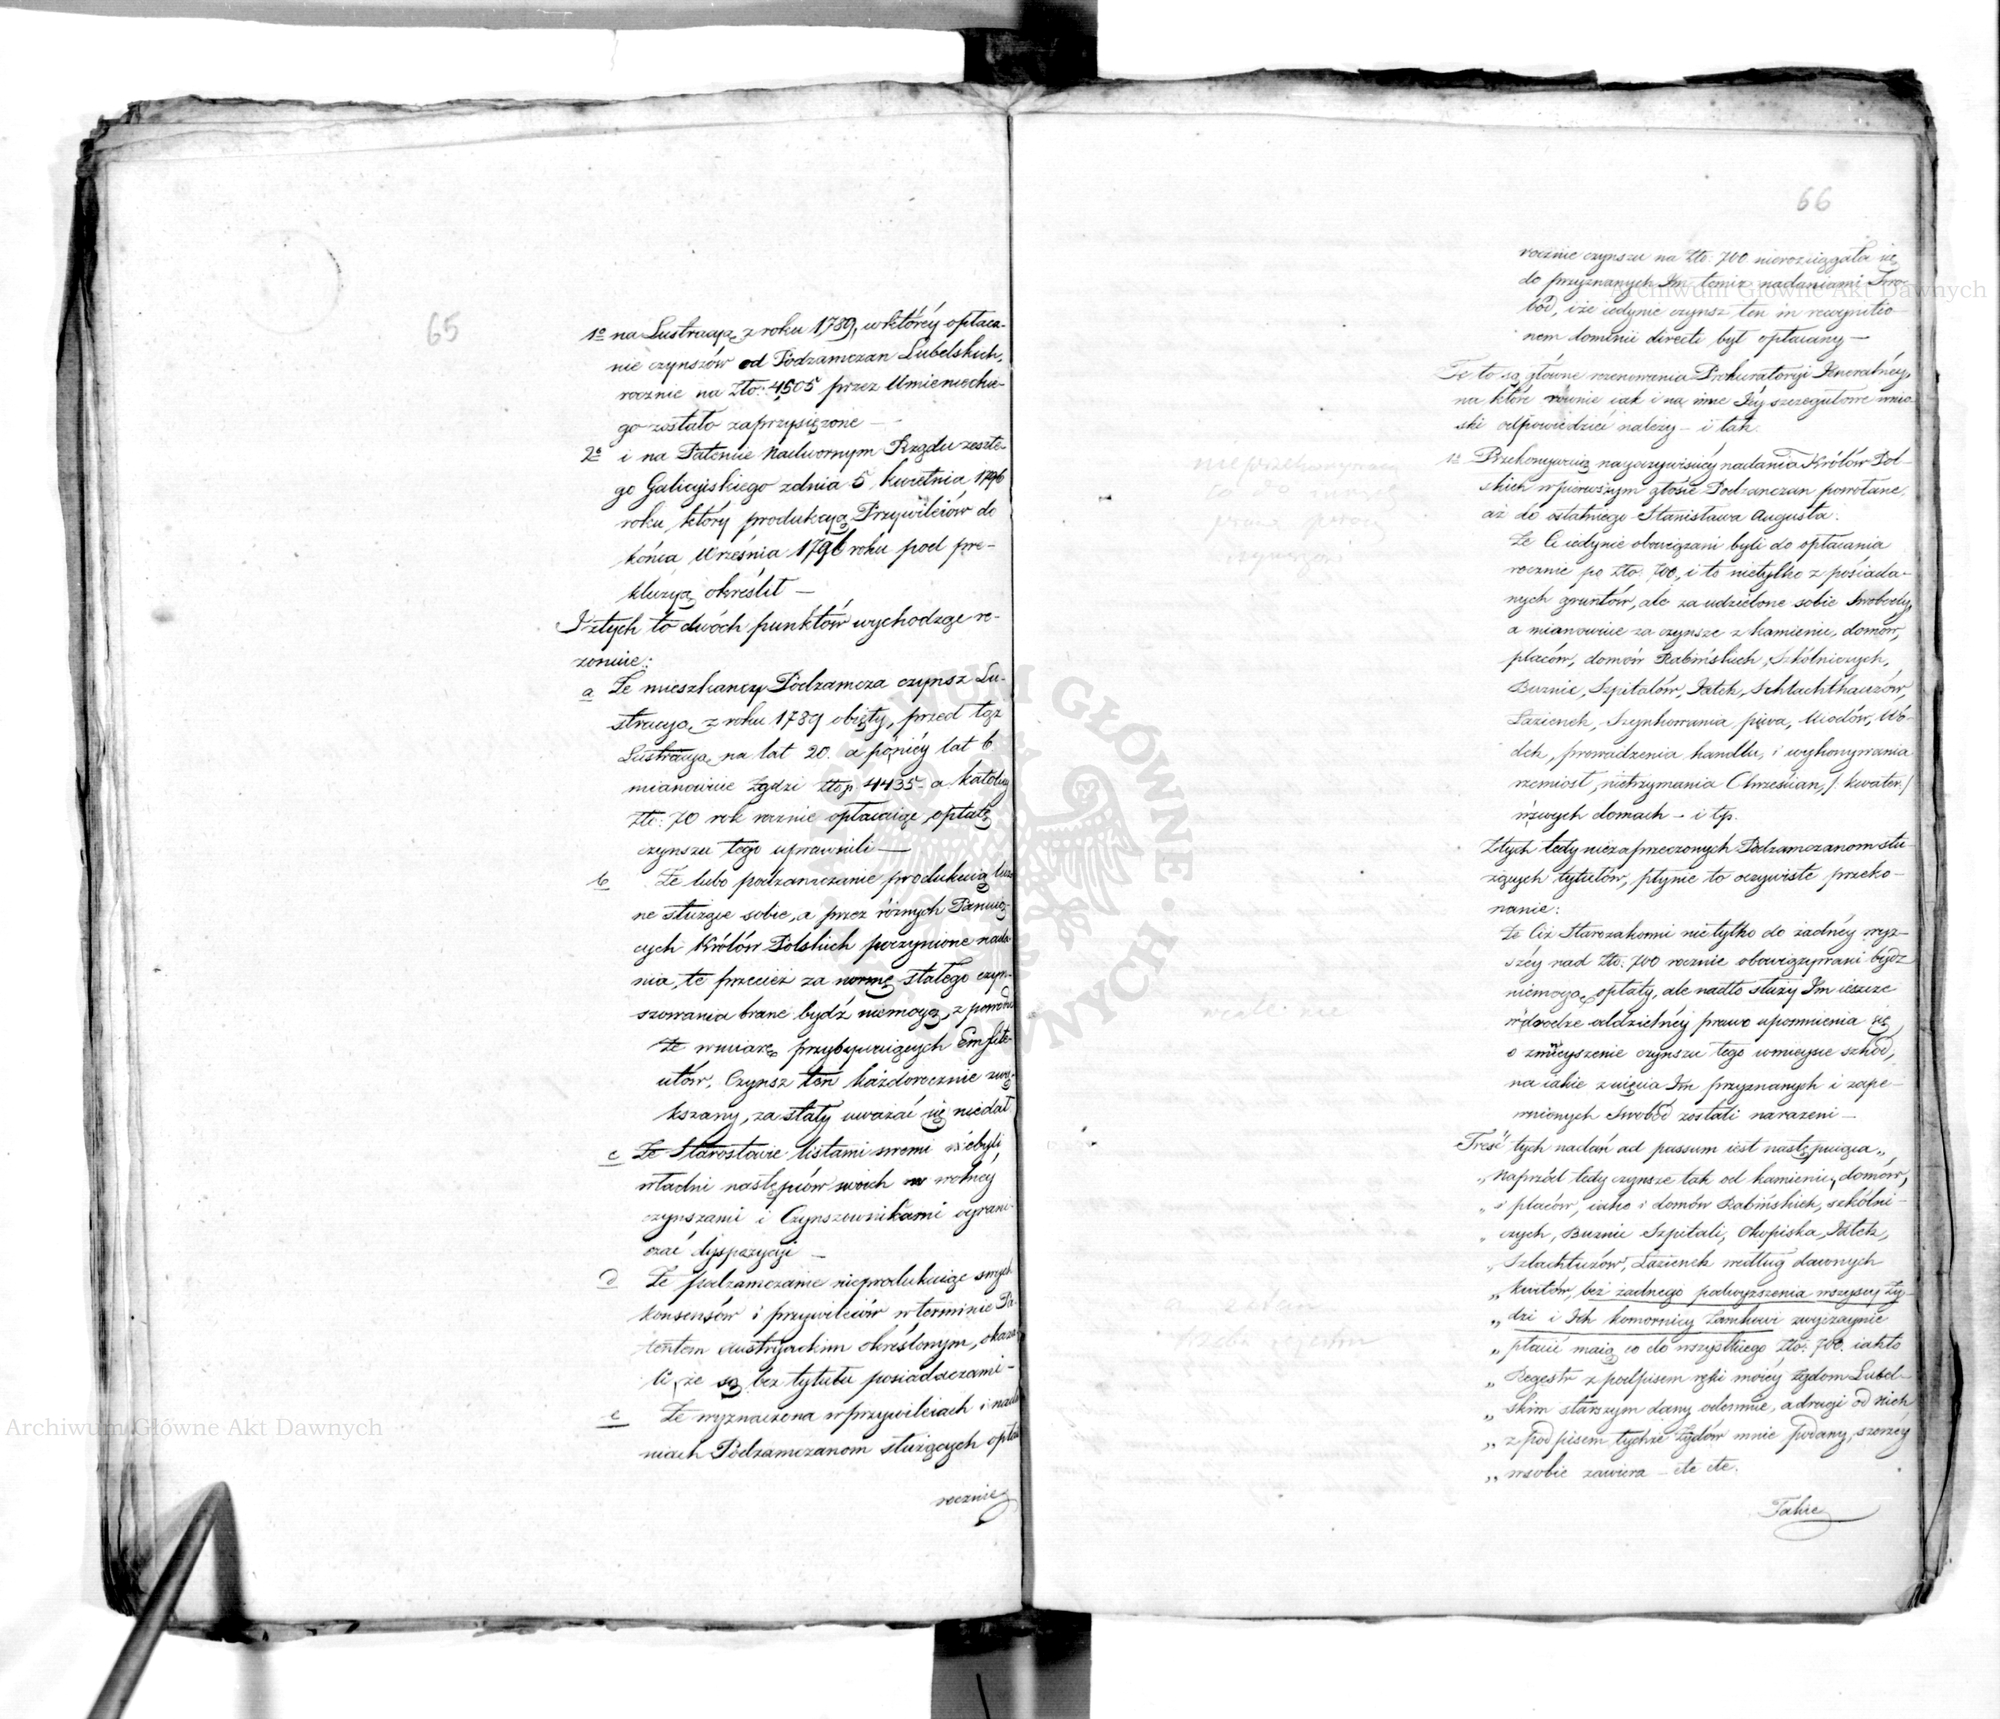 65
1º na Lustracyą z roku 1789, w któréy opłaca-
nie czynszów od Podzamczan Lubelskich,
rocznie na Złto: 4505 przez Umieniechie-
go zostało zaprzysiężone —
2º i na Patencie Nadwornym Rządu zeszłe-
go Galicyiskiego z dnia 5 kwietnia 1796
roku, który produkcyą Przywileiów do
końca Września 1796 roku pod pre-
kluzyą określił —
I z tych to dwóch punktów wychodząc re-
zonuie:
a Że mieszkańcy Podzamcza czynsz Lu-
stracyą z roku 1789 obięty, przed tąż
Lustracyą na lat 20. a późniéy lat 6
mianowicie Żydzi Złtp. 4435 – a katolicy
Złto: 70 rok rocznie opłacaiąc, opłatę
czynszu tego uprawnili —
b Że lubo podzamczanie produkuią
ne służące sobie, a przez różnych Panuią-
cych Królów Polskich poczynione nada-
nia, te przecież za normę stałego czyn-
szowania brane bydź niemogą, z powodu
że w miarę przybywaiących Emfite-
utów, Czynsz ten każdorocznie zwię-
kszany, za stały uważać się niedał
c Że Starostowie listami swemi niebyli
władni następców swoich w wolnéy
czynszami i Czynszownikami ograni-
czać dyspozycyi —
d Że podzamczanie nieprodukuiąc swych
konsensów i przywileiów w terminie Pa-
tentem Austryackim określonym, okaza-
li, że są bez tytułu posiadaczami –
e Że wyznaczona w przywileiach i nada-
niach Podzamczanom służących opłata
rocznie
66
rocznie czynszu na Złto: 700 nierozciągała się
do przyznanych Im temiż nadaniami Swo-
bód, i że iedynie czynsz ten in recognitio-
nem dominii directi był opłacany —
Te to są główne rezonowania Prokuratoryi Jeneralnéy,
na które równie iak i na inne Jéy szczegułowe wnio-
ski odpowiedzieć należy – i tak
1º Przekonywaią nayoczywiściéy nadania Królów Pol-
skich w pierwszym głosie Podzamczan powołane,
aż do ostatniego Stanisława Augusta:
Że Ci iedynie obowiązani byli do opłacania
rocznie po Złto: 700, i to nietylko z posiada-
nych gruntów, ale za udzielone sobie Swobody,
a mianowicie za czynsze z kamienic, domów,
placów, domów Rabińskich, Szkólniczych,
Bużnic, Szpitalów, Jatek, Schlachthauzów,
Łazienek, Szynkowania piwa, Miodów, Wó-
dek, prowadzenia handlu, i wykonywania
rzemiosł, nietrzymania Chrześcian, /: kwater:/
w swych domach – i tp.
Z tych tedy niezaprzeczonych Podzamczanom słu-
żących tytułów, płynie to oczywiste przeko-
nanie:
Że Ciż Starozakonni nietylko do żadnéy wyż-
széy nad Złto: 700 rocznie obowiązywani bydź
niemogą opłaty, ale nadto służy Im ieszcze
w drodze oddzielnéy prawo upomnienia się
o zmnieyszenie czynszu tego w mieysce szkód,
na iakie z uięcia Im przyznanych i zape-
wnionych Swobód zostali narażeni —
Treść tych nadań ad passum iest następuiąca „
„ Naprzód tedy czynsze tak od kamienic, domów,
„ i placów, iako i domów Rabińskich, szkólni-
„ czych, Bużnic Szpitali, Okopiska, Jatek,
„ Szlachtuzów, Łazienek według dawnych
„ kwitów, bez żadnego podwyższenia wszyscy Ży-
„ dzi i Ich komornicy Zamkowi zwyczaynie
„ płacić maią co do wszystkiego Złto: 700. iak to
„ Regestr z podpisem ręki moiéy Żydom Lubel-
„ skim starszym dany odemnie, a drugi od nich
„ z podpisem tychże Żydów mnie podany, szerzéy
„ w sobie zawiera – etc etc.
Takie